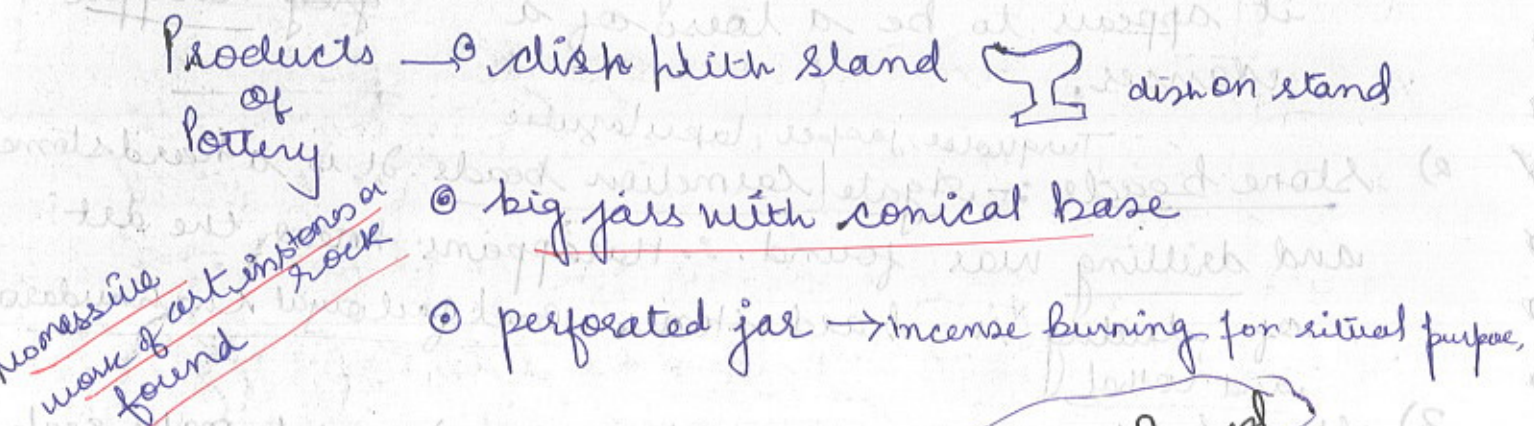 Products → dish with stand dish on stand
of
Pottery
big jars with conical base
perforated jar → incense burning for ritual purpae,
No massive
work of art in stones or
rock
found